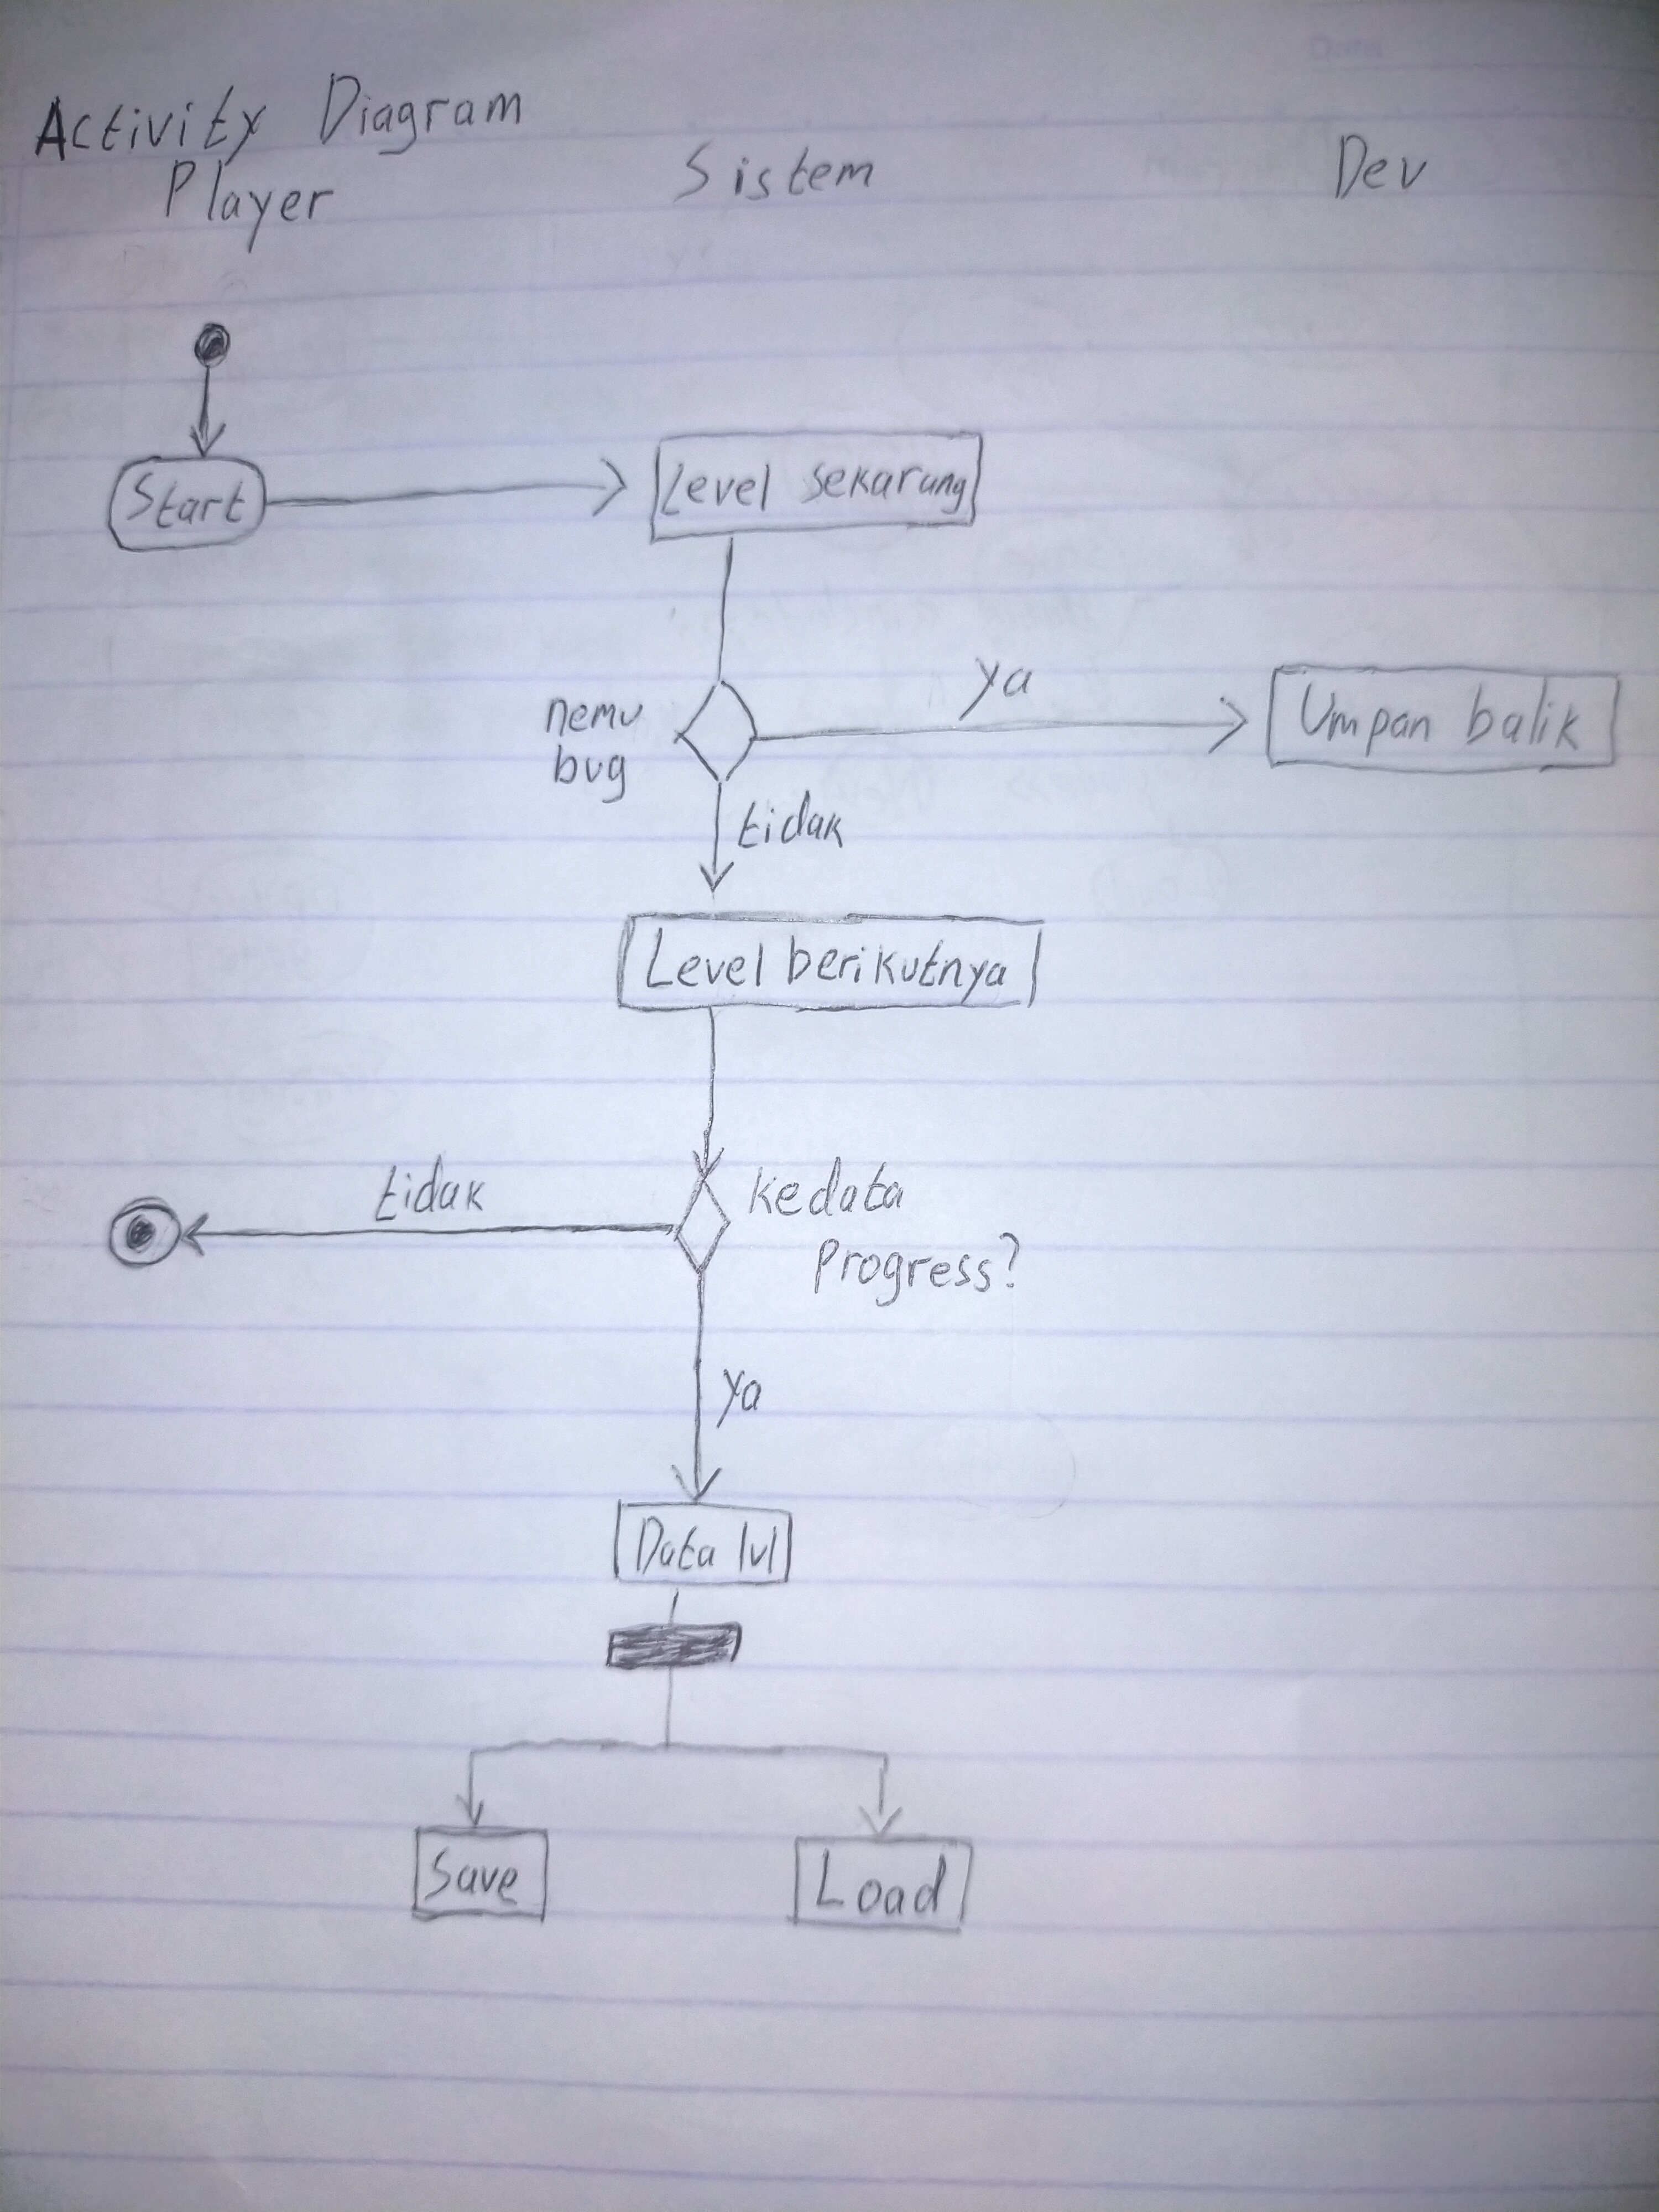 Activity Diagram
Player
Sistem
Dev
Start
Level sekarang
nemu
bug
ya
Umpan balik
tidak
Level berikutnya
tidak
kedata
Progress?
ya
Data lvl
Save
Load